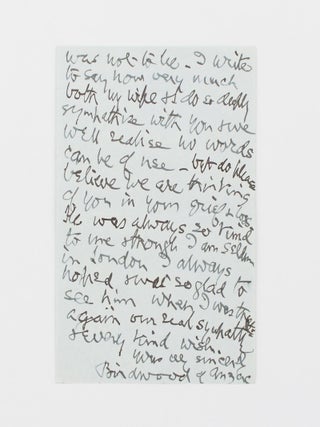 was not to be. I write
to say how very much
both my wife & I do so deeply
sympathise with you & we
well realise no words
can be of use – but do please
believe we are thinking
of you in your grief & loss
He was always so kind
to me & though I am seldom
in London I always
hoped & was so glad to
see him when I was there
again our real sympathy
& every kind wish.
Yours very sincerely
Birdwood of Anzac